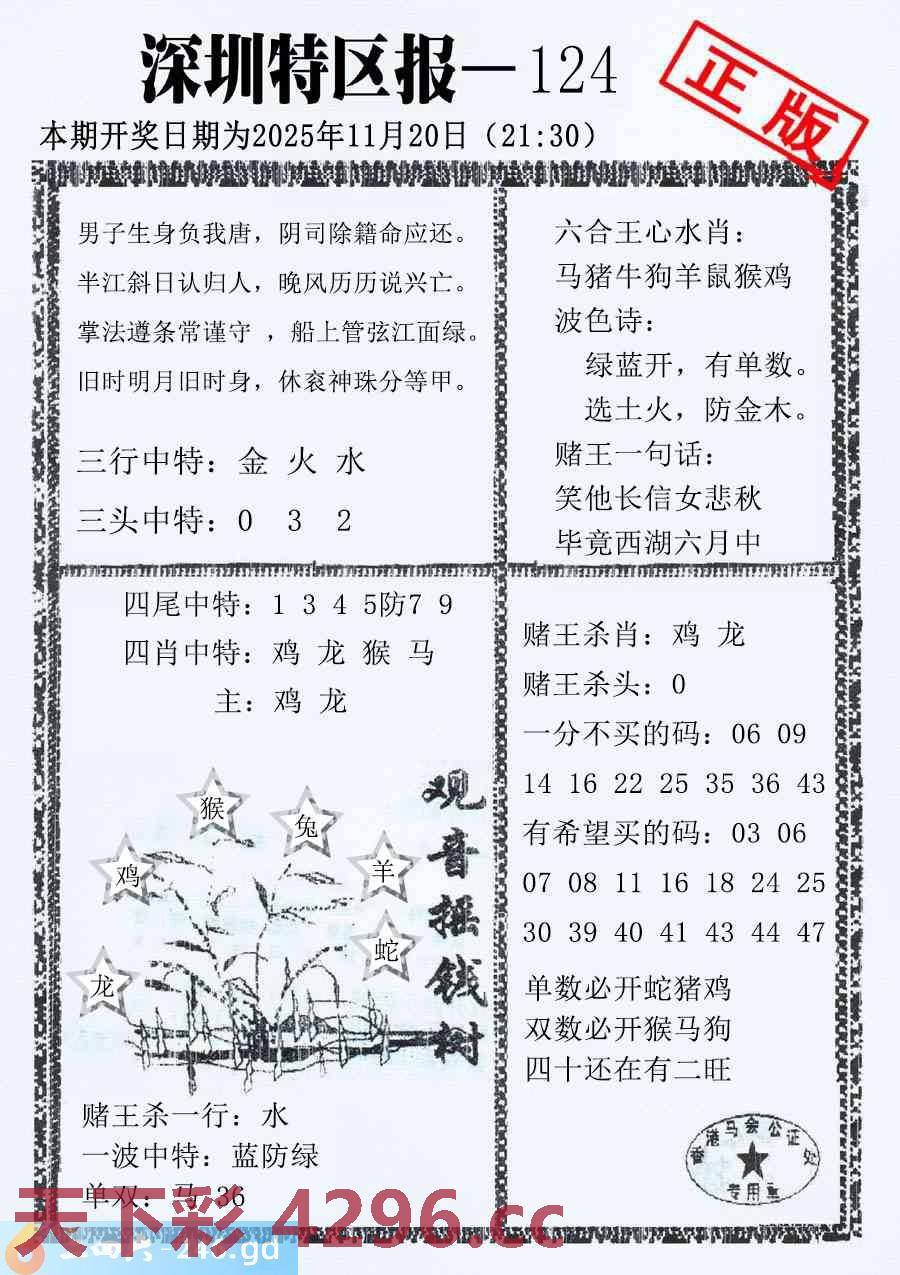 深圳特区报—124
正版
本期开奖日期为2025年11月20日（21:30）
男子生身负我唐，阴司除籍命应还。
半江斜日认归人，晚风历历说兴亡。
掌法遵条常谨守 ，船上管弦江面绿。
旧时明月旧时身，休衮神珠分等甲。
三行中特：金 火 水
三头中特：0 3 2
六合王心水肖：
马猪牛狗羊鼠猴鸡
波色诗：
绿蓝开，有单数。
选土火，防金木。
赌王一句话：
笑他长信女悲秋
毕竟西湖六月中
四尾中特：1 3 4 5防7 9
四肖中特：鸡 龙 猴 马
主：鸡 龙
猴
兔
鸡
羊
蛇
龙
观音摇钱树
赌王杀一行：水
一波中特：蓝防绿
单双：马 36
赌王杀肖：鸡 龙
赌王杀头：0
一分不买的码：06 09
14 16 22 25 35 36 43
有希望买的码：03 06
07 08 11 16 18 24 25
30 39 40 41 43 44 47
单数必开蛇猪鸡
双数必开猴马狗
四十还在有二旺
香港马会公证处
专用章
天下彩 4296.cc